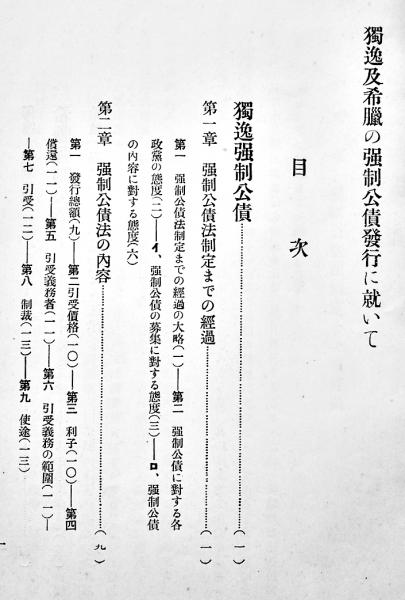 獨逸及希臘の强制公債發行に就いて
目次
獨逸强制公債……………………………(一)
第一章 强制公債法制定までの經過……………………(一)
第一 强制公債法制定までの經過の大略(一)——第二 强制公債に對する各
政黨の態度(二)——イ、强制公債の募集に對する態度(三)——ロ、强制公債
の内容に對する態度(六)
第二章 强制公債法の內容……………………………(九)
第一 發行總額(九)——第二 引受價格(一〇)——第三 利子(一〇)——第四
償還(一一)——第五 引受義務者(一一)——第六 引受義務の範圍(一一)——
—第七 引受(一二)——第八 制裁(一三)——第九 使途(一三)
一